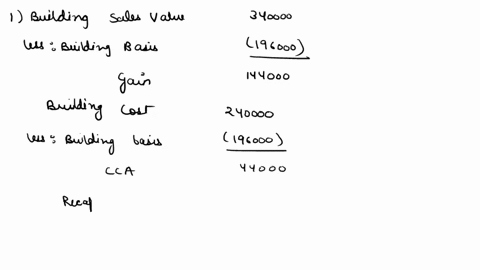 1) Building Sales Value 340000
less : Building Basis (196000)
Gain 144000
Building Cost 240000
less : Building basis (196000)
CCA 44000
Recap